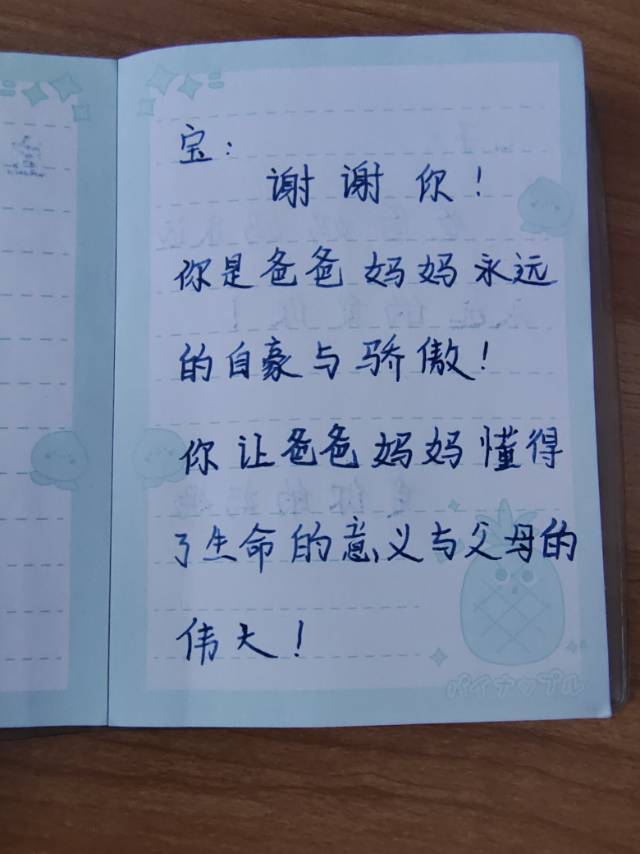 宝：
谢谢你！
你是爸爸妈妈永远
的自豪与骄傲！
你让爸爸妈妈懂得
了生命的意义与父母的
伟大！
パイナップル